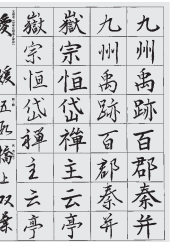 九州禹跡百郡秦并
九州禹跡百郡秦并
嶽宗恒岱禪主云亭
嶽宗恒岱禪主云亭